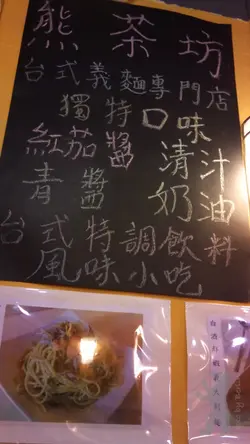 熊茶坊
台式義麵專門店
獨特口味
紅茄醬 清汁
青醬 奶油
台式特調飲料
風味小吃